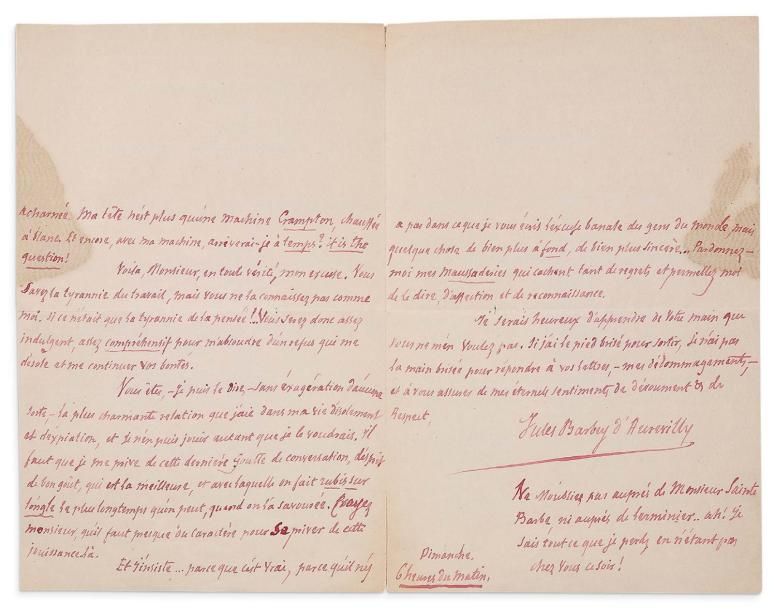 acharnée. Ma tête n'est plus qu'une machine Crampton chauffée
à blanc. Et encore, avec ma machine, arriverai-je à temps? it is the
question!
Voilà, Monsieur, en toute vérité, mon excuse. Vous
savez la tyrannie du travail, mais vous ne la connaissez pas comme
moi. Si ce n'était que la tyrannie de la pensée! Vous serez donc assez
indulgent, assez compréhensif pour m'absoudre d'un refus qui me
désole et me continuer vos bontés.
Vous êtes, – je puis le dire, – sans éxagération d'aucune
sorte, – la plus charmante relation que j'aie dans ma vie d'isolement
et d'expiation, et je n'en puis jouir autant que je le voudrais. Il
faut que je me prive de cette dernière goutte de conversation, d'esprit
de bon goût, qui est la meilleure, et avec laquelle on fait rubis sur
l'ongle le plus longtemps qu'on peut, quand on l'a savourée. Croyez
monsieur, qu'il faut presque du caractère pour se priver de cette
jouissance là.
Et j'insiste... parce que c'est vrai, parce qu'il n'y
a pas dans ce que je vous écris l'excuse banale des gens du monde, mais
quelque chose de bien plus à fond, de bien plus sincère... Pardonnez-
moi mes maussaderies qui cachent tant de regrets et permettez moi
de le dire, d'affection et de reconnaissance.
Je serais heureux d'apprendre de votre main que
vous ne m'en voulez pas. Si j'ai le pied brisé pour sortir, je n'ai pas
la main brisée pour répondre à vos lettres, – mes dédommagements, –
et à vous assurer de mes éternels sentiments de dévouement & de
Respect,
Jules Barbey d'Aurevilly
Ne m'oubliez pas auprès de Monsieur Sainte
Barbe, ni auprès de Lerminier.. ah! Je
sais tout ce que je perds en n'étant pas
chez vous ce soir!
Dimanche.
6 heures du matin.